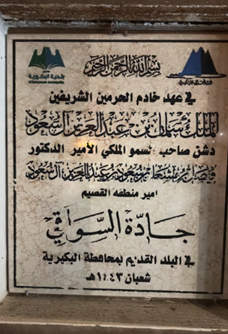 بسم الله الرحمن الرحيم
بلدية البكيرية
في عهد خادم الحرمين الشريفين
الملك سلمان بن عبدالعزيز آل سعود
دشن صاحب السمو الملكي الأمير الدكتور
فيصل بن مشعل بن سعود بن عبدالعزيز آل سعود
امير منطقة القصيم
جادة السواقي
في البلد القديم بمحافظة البكيرية
شعبان ١٤٤٣هـ